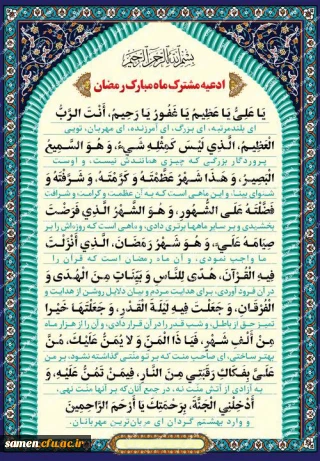 بسم الله الرحمن الرحیم
ادعیه مشترک ماه مبارک رمضان
یَا عَلِیُّ یَا عَظِیمُ، یَا غَفُورُ یَا رَحِیمُ، أَنْتَ الرَّبُّ
ای بلندمرتبه، ای بزرگ، ای آمرزنده، ای مهربان، تویی
الْعَظِیمُ، الَّذِی لَیْسَ کَمِثْلِهِ شَیْءٌ، وَ هُوَ السَّمِیعُ
پروردگار بزرگی که چیزی همانندش نیست، و اوست
الْبَصِیرُ، وَ هَذَا شَهْرٌ عَظَّمْتَهُ وَ کَرَّمْتَهُ، وَ شَرَّفْتَهُ وَ
شنوای بینا؛ و این ماهی است که به آن عظمت و کرامت و شرافت
فَضَّلْتَهُ عَلَی الشُّهُورِ، وَ هُوَ الشَّهْرُ الَّذِی فَرَضْتَ
بخشیدی و بر سایر ماهها برتری دادی، و ماهی است که روزه‌اش را بر
صِیَامَهُ عَلَیَّ، وَ هُوَ شَهْرُ رَمَضَانَ، الَّذِی أَنْزَلْتَ
ما واجب نمودی، و آن ماه رمضان است که قرآن را
فِیهِ الْقُرْآنَ، هُدًی لِلنَّاسِ وَ بَیِّنَاتٍ مِنَ الْهُدَی وَ
در آن فرود آوردی، برای هدایت مردم و بیان دلایل روشن از هدایت و
الْفُرْقَانِ، وَ جَعَلْتَ فِیهِ لَیْلَةَ الْقَدْرِ، وَ جَعَلْتَهَا خَیْرًا
تمیز حق از باطل، و شب قدر را در آن قرار دادی، و آن را از هزار ماه
مِنْ أَلْفِ شَهْرٍ، فَیَا ذَا الْمَنِّ وَ لَا یُمَنُّ عَلَیْکَ، مُنَّ
بهتر ساختی، ای صاحب منت که بر تو منتی گذاشته نشود، بر من
عَلَیَّ بِفَکَاکِ رَقَبَتِی مِنَ النَّارِ، فِیمَنْ تَمُنُّ عَلَیْهِ، وَ
به آزادی از آتش منت نه، در جمع آنان که بر آنها منت نهی،
أَدْخِلْنِی الْجَنَّةَ، بِرَحْمَتِکَ یَا أَرْحَمَ الرَّاحِمِینَ
و وارد بهشتم گردان ای مهربان‌ترین مهربانان.
samen.cfu.ac.ir